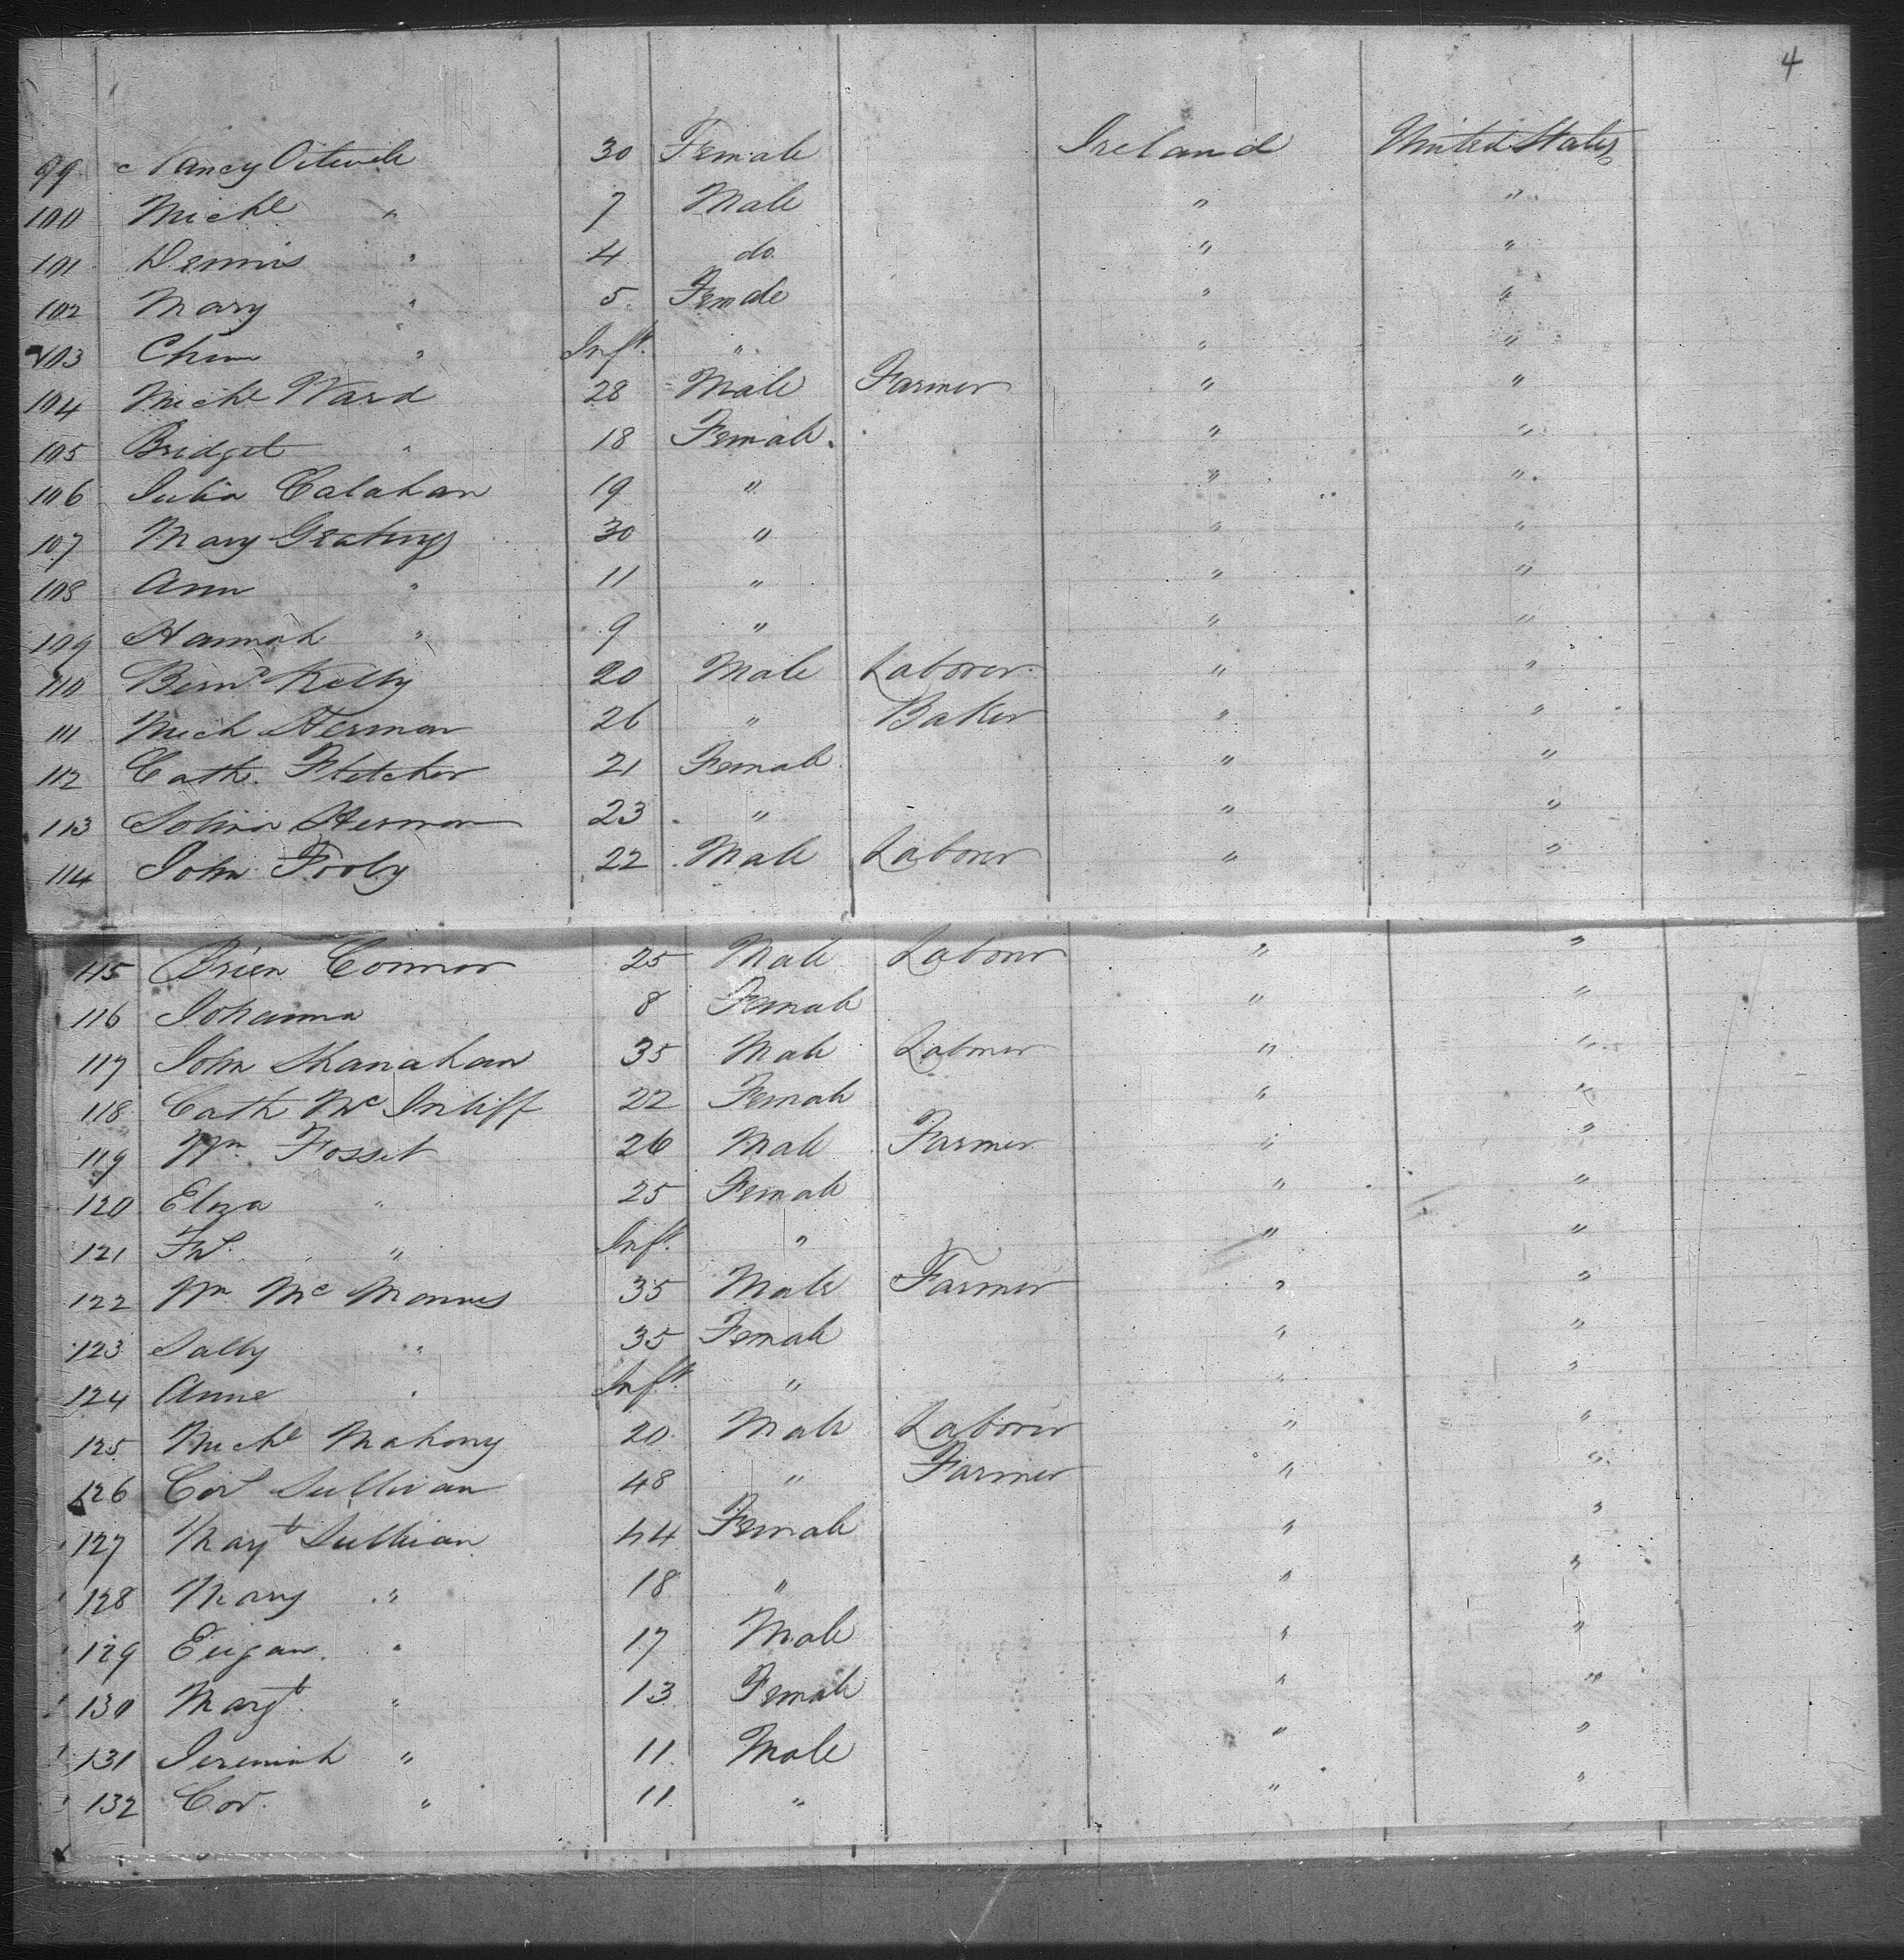 4
99 Nancy 30 Female Ireland United States
100 Michl " 7 Male " "
101 Dennis " 4 do " "
102 Mary " 5 Female " "
103 " Inft. " " "
104 Michl Ward 28 Male Farmer " "
105 Bridget " 18 Female " "
106 Julia Calahan 19 " " "
107 Mary 30 " " "
108 Ann " 11 " " "
109 Hannah " 9 " " "
110 Bernd Kelly 20 Male Laborer " "
111 Mich Herman 26 " Baker " "
112 Cath. Fletcher 21 Female " "
113 Herman 23 " " "
114 John 22 Male Laborer " "
115 Brien Connor 25 Male Laborer " "
116 Johanna 8 Female " "
117 John Shanahan 35 Male Laborer " "
118 Cath Mc 22 Female " "
119 Wm. Fosset 26 Male Farmer " "
120 Eliza " 25 Female " "
121 " Inft. " " "
122 Wm Mc Manus 35 Male Farmer " "
123 Sally " 35 Female " "
124 Anne " Inft. " " "
125 Michl Mahony 20 Male Laborer " "
126 Cor Sullivan 48 " Farmer " "
127 Margt Sullivan 44 Female " "
128 Mary " 18 " " "
129 Eugan " 17 Male " "
130 Margt. " 13 Female " "
131 Jeremiah " 11 Male " "
132 Cor. " 11 " " "